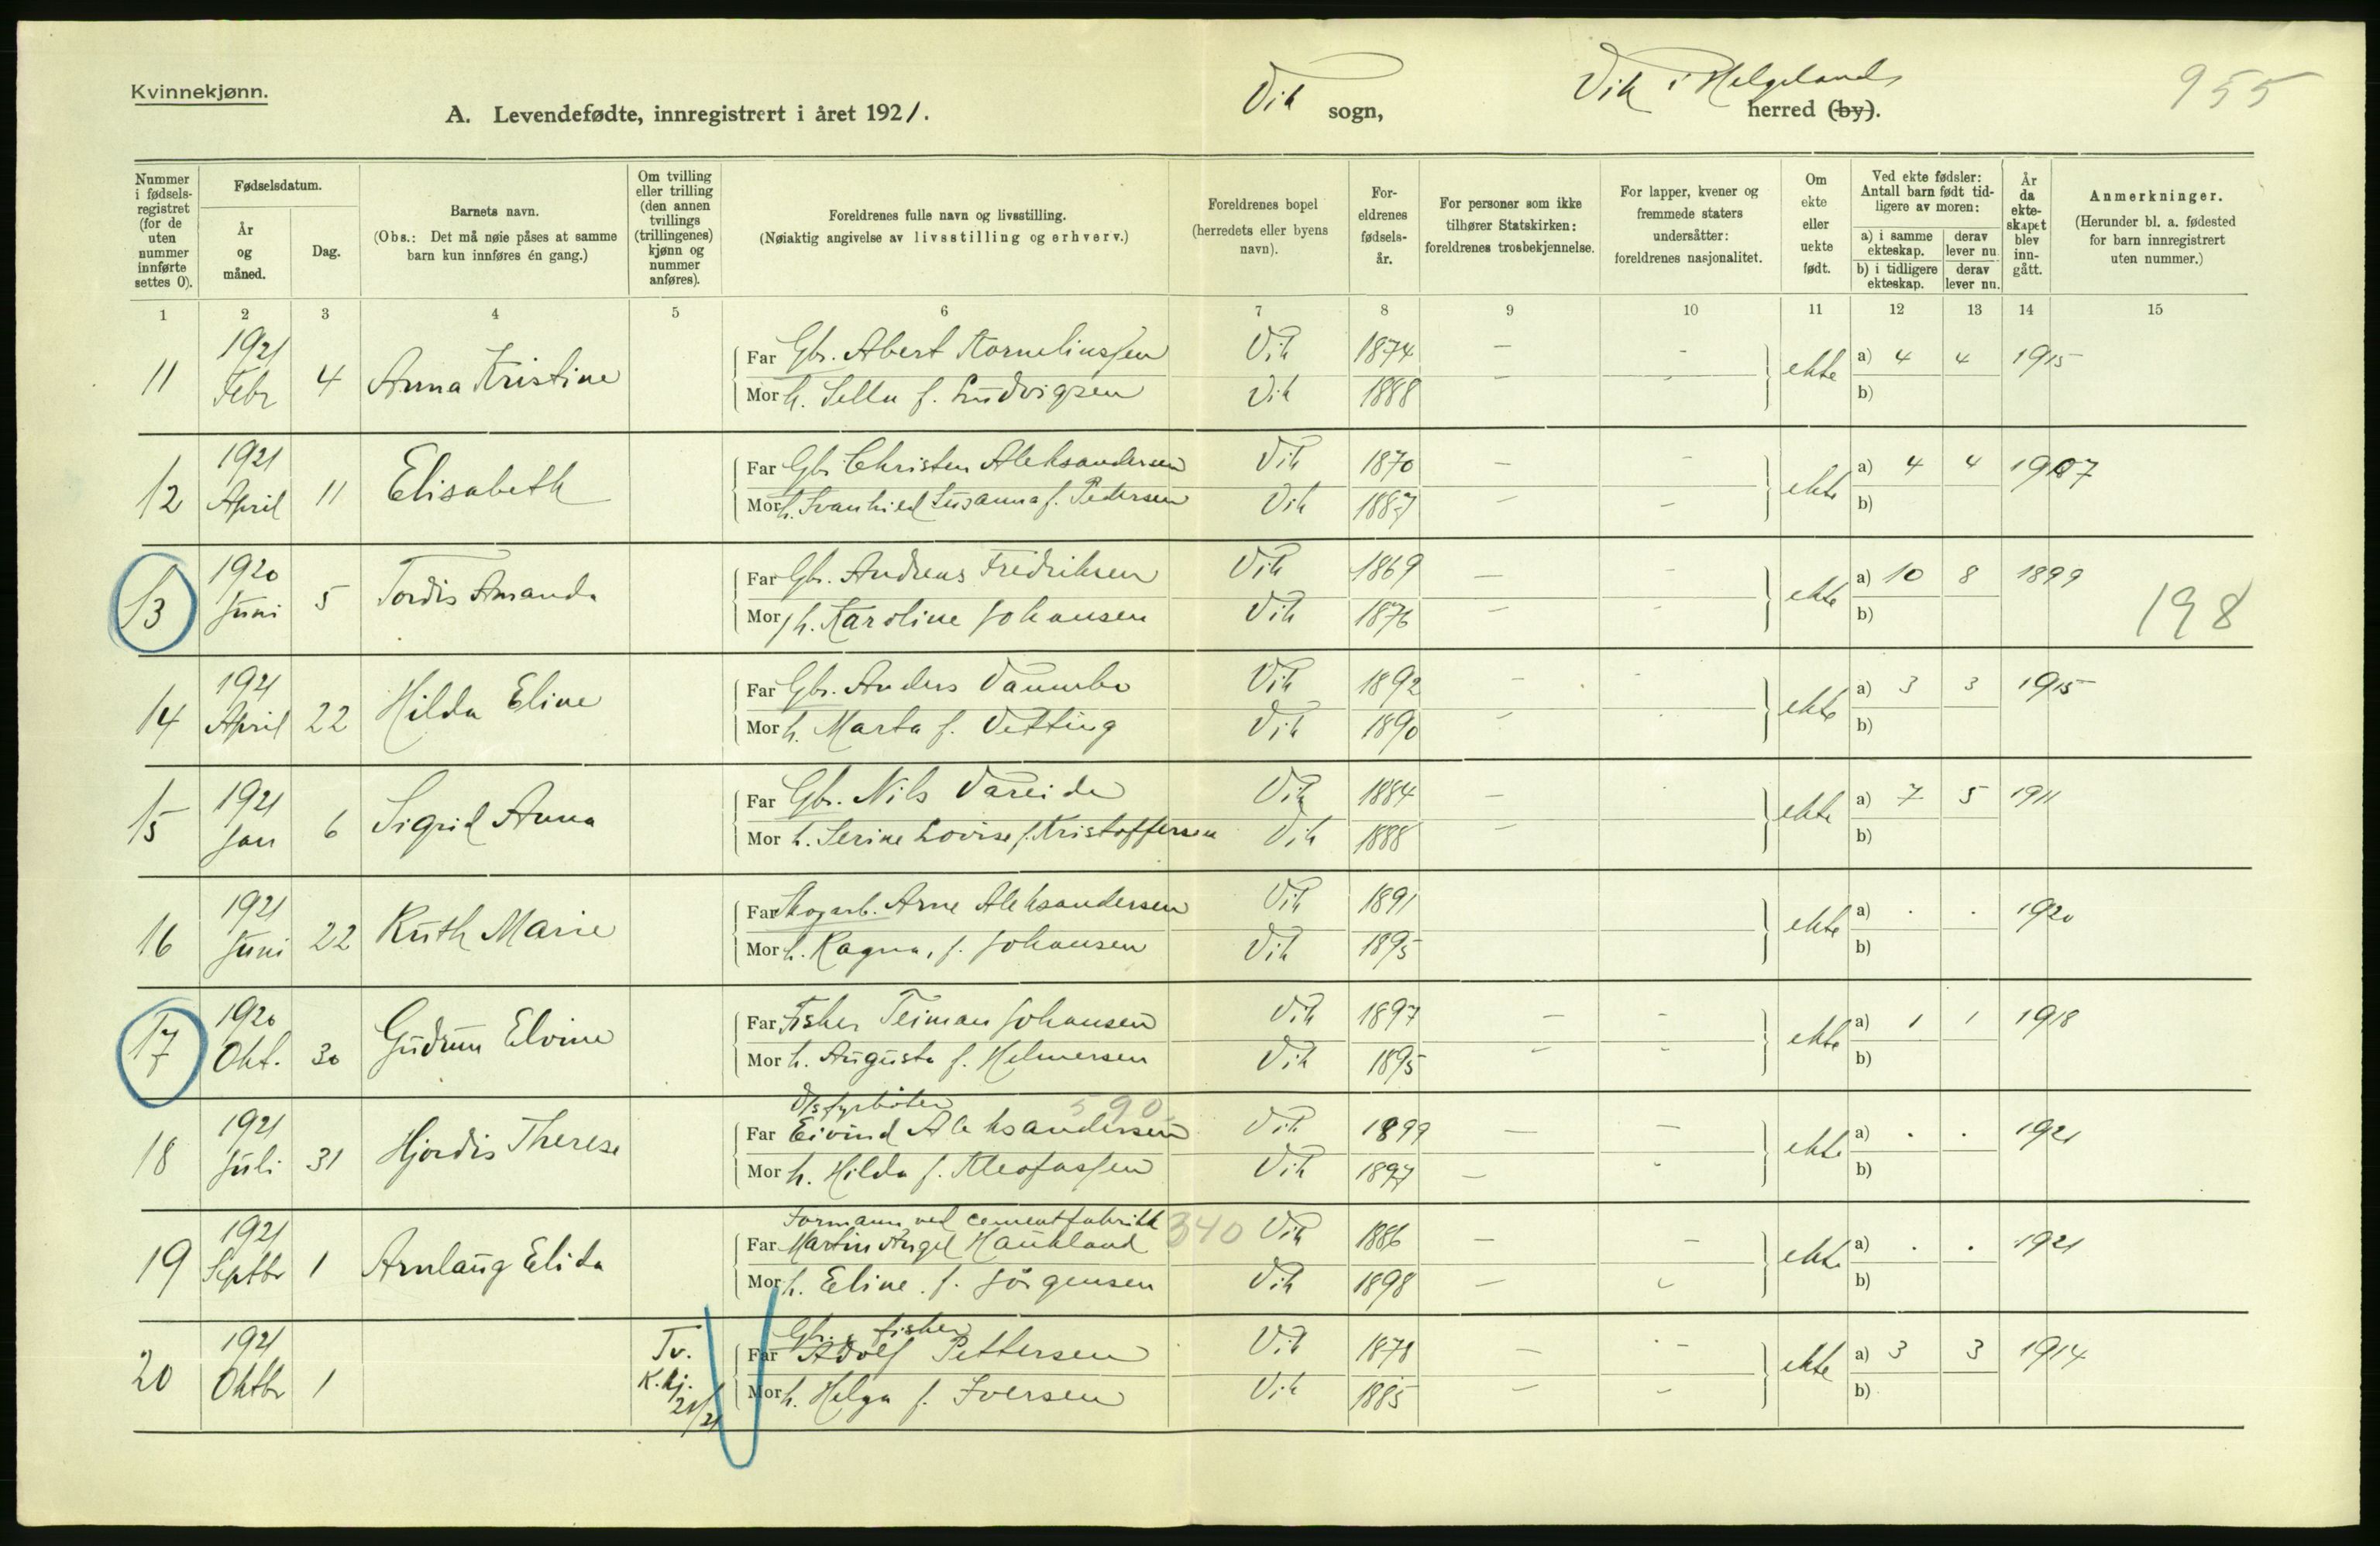 Kvinnekjønn.
A. Levendefødte, innregistrert i året 1921.
Vik sogn,
Vik i Helgeland herred (by).
955
Nummer i fødsels-registret (for de uten nummer innførte settes 0).
Fødselsdatum.
År og måned.
Dag.
Barnets navn.
(Obs.: Det må nøie påses at samme barn kun innføres én gang.)
Om tvilling eller trilling (den annen tvillings (trillingenes) kjønn og nummer anføres).
Foreldrenes fulle navn og livsstilling.
(Nøiaktig angivelse av livsstilling og erhverv.)
Foreldrenes bopel (herredets eller byens navn).
For-eldrenes fødsels-år.
For personer som ikke tilhører Statskirken: foreldrenes trosbekjennelse.
For lapper, kvener og fremmede staters undersåtter: foreldrenes nasjonalitet.
Om ekte eller uekte født.
Ved ekte fødsler: Antall barn født tid-ligere av moren:
a) i samme ekteskap. derav lever nu.
b) i tidligere ekteskap. derav lever nu.
År da ekte-skapet blev inn-gått.
Anmerkninger.
(Herunder bl. a. fødested for barn innregistrert uten nummer.)
1 2 3 4 5 6 7 8 9 10 11 12 13 14 15
11 1921 Febr 4 Anna Kristine Far Gbr. Abert Kornelinssen Vik 1874 - - ekte a) 4 4 1915
Mor h. Sella f. Ludvigsen Vik 1888 - - b)
12 1921 April 11 Elisabeth Far Gbr Christen Aleksandersen Vik 1870 - - ekte a) 4 4 1907
Mor h. Svanhied Susanna f. Pedersen Vik 1887 - - b)
13 1920 Juni 5 Tordis Amanda Far Gbr. Andreas Fredriksen Vik 1869 - - ekte a) 10 8 1899
Mor h. Karoline Johansen Vik 1876 - - b)
198
14 1921 April 22 Hilda Eline Far Gbr. Anders Vannebo Vik 1892 - - ekte a) 3 3 1915
Mor h. Marta f. Vetting Vik 1890 - b)
15 1921 Jan 6 Sigrid Anna Far Gbr. Nils Vareide Vik 1884 - ekte a) 7 5 1911
Mor h. Serine Lovise f. Kristoffersen Vik 1888 - b)
16 1921 Juni 22 Ruth Marie Far Skogarb. Arne Aleksandersen Vik 1891 ekte a) . . 1920
Mor h. Ragna, f. Johansen Vik 1895 b)
17 1920 Okt. 30 Gudrun Elvine Far Fisker Teiman Johansen Vik 1897 - - ekte a) 1 1 1918
Mor h. Augusta f. Helmersen Vik 1895 - - b)
D/s fyrbøter 590
18 1921 Juli 31 Hjordis Therese Far Eivind Aleksandersen Vik 1899 - - ekte a) . . 1921
Mor h. Hilda f. Kleofassen Vik 1897 - - b)
Formann ved cementfabrikk 340
19 1921 Septbr 1 Arnlaug Elida Far Martin Angel Haukland Vik 1886 - - ekte a) . . 1921
Mor h. Eline f. Jörgensen Vik 1898 - - b)
Gbr. & fisker
20 1921 Oktbr 1 Tv. K.kj. 21/21 Far Adolf Pettersen Vik 1878 - - ekte a) 3 3 1914
Mor h. Helga f. Iversen Vik 1885 - - b)